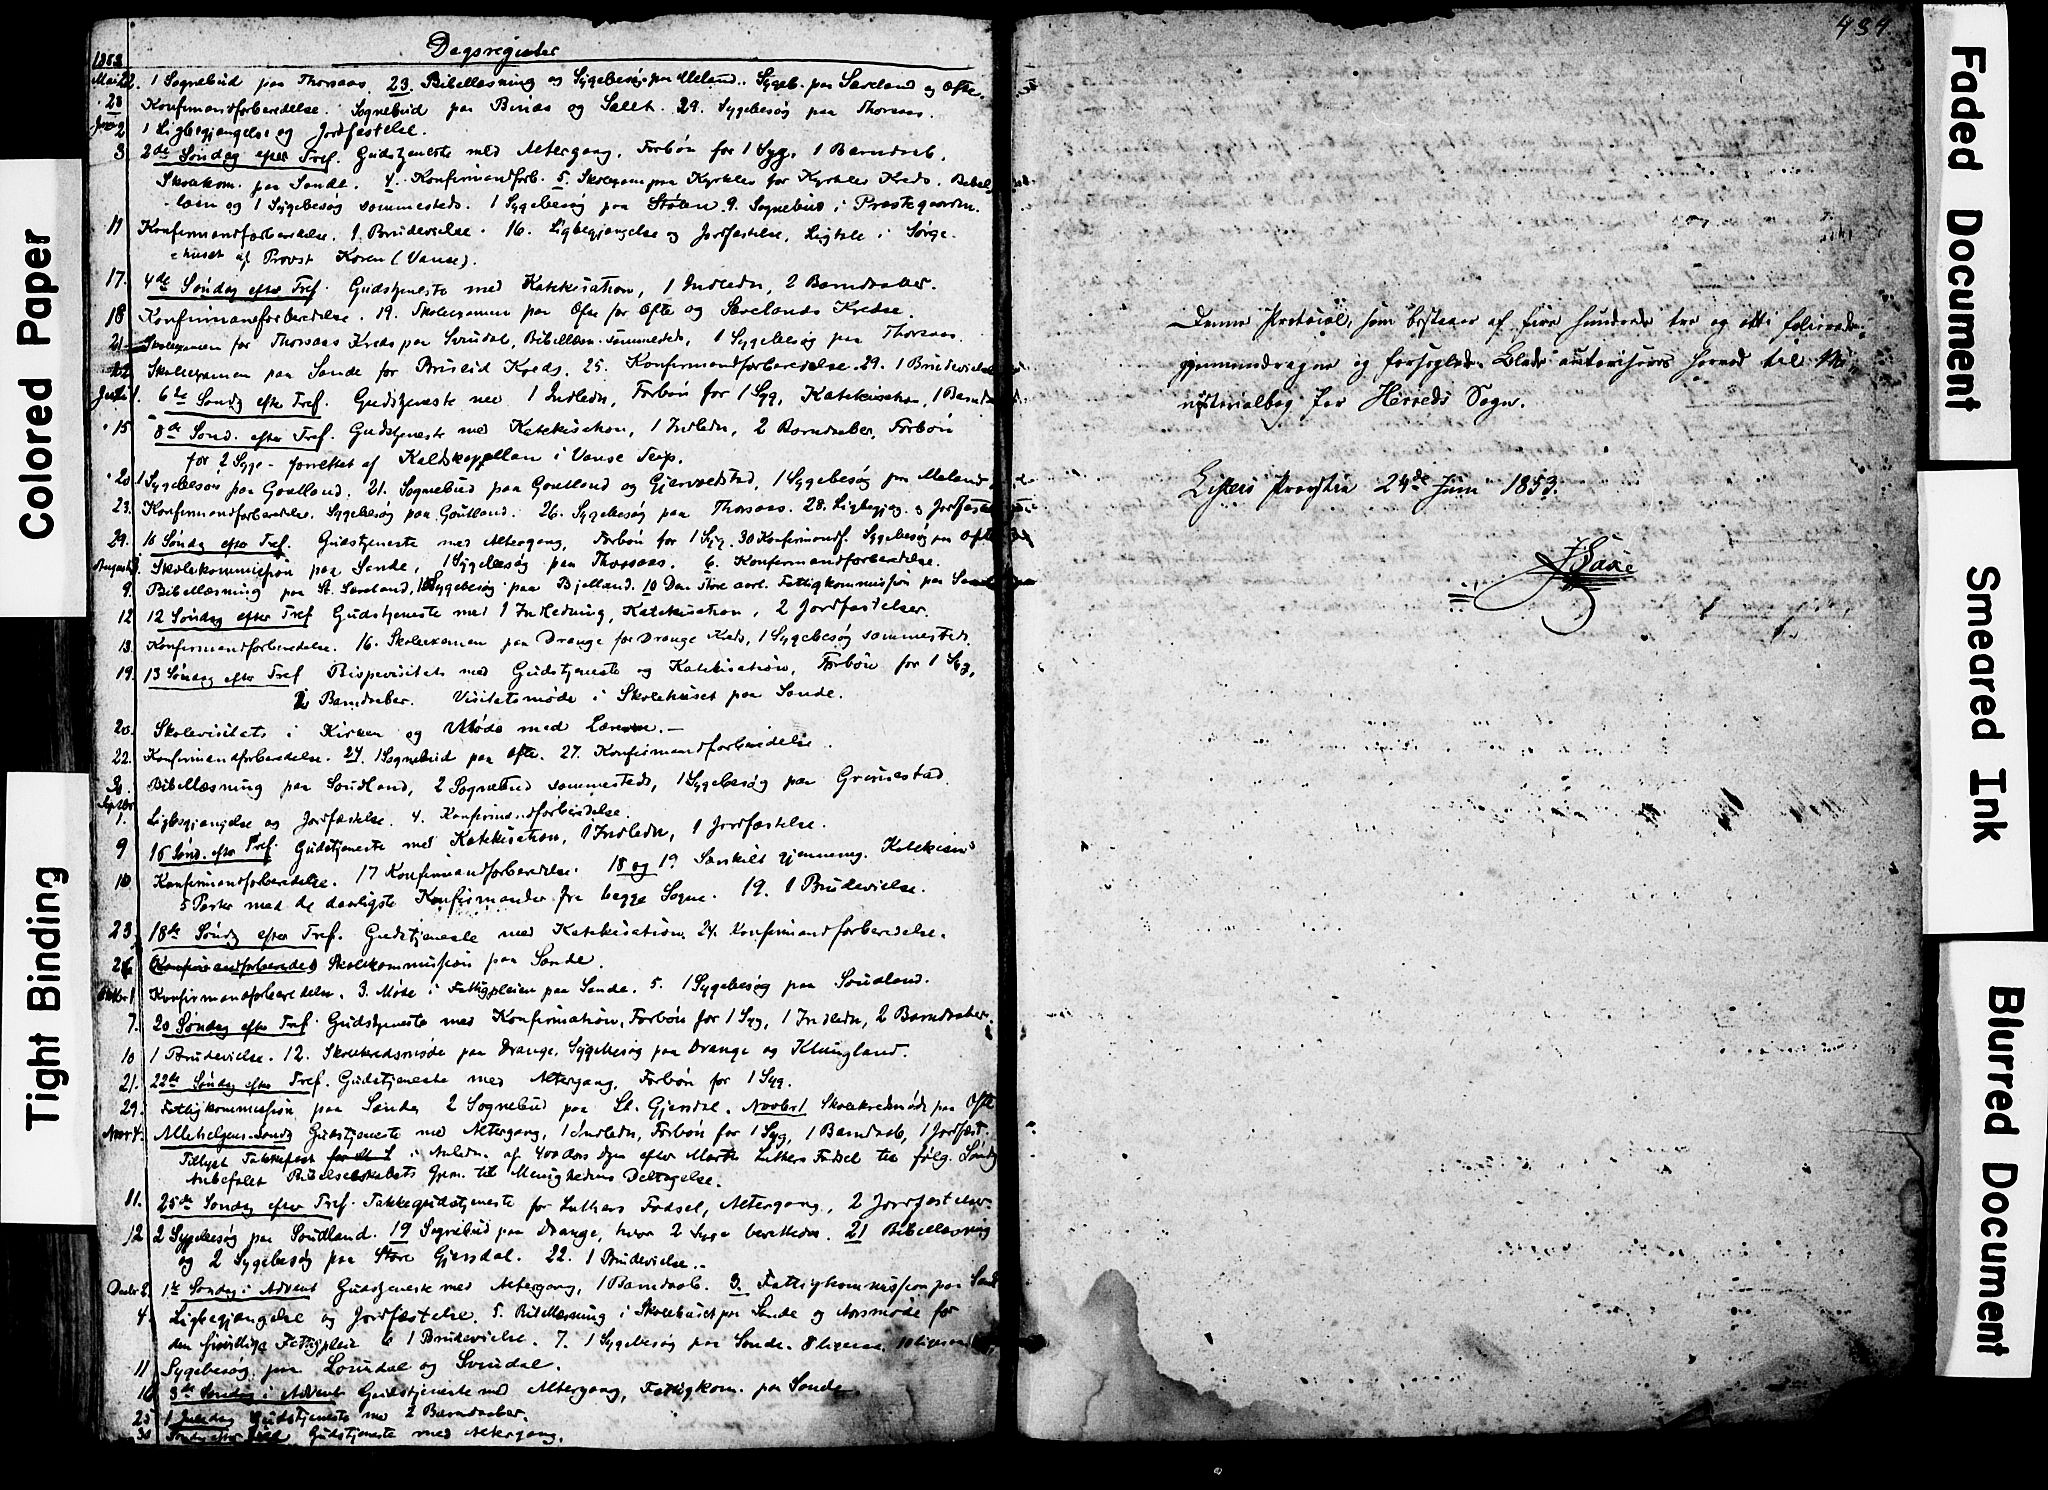 Dagsregister
1883
Mai 22. 1 Sognebud paa Thorsaas. 23. Bibellæsning og Sygebesøg paa Meland. Sygeb. paa Sæveland og Ofte.
28 Konfirmandforberedelse. Sognebud paa Birias og Salt. 29. Sygebesøg paa Thorsaas.
Juni 2 1 Ligbegjængelse og Jordfæstelse.
3 2de Søndag efter Tref. Gudstjeneste med Altergang, Forbøn for 1 Syg, 1 Barndaab.
Skolekom. paa Sande. 4. Konfirmandforb. 5. Skoleexam paa Kyrkles for Kyrkles Kreds. Bibel-
læsn og 1 Sygebesøg sammesteds. 1 Sygebesøg paa Stølen. 9. Sognebud i Præstegaarden.
11 Konfirmandforberedelse. 1 Brudevielse. 16. Ligbegjængelse og Jordfæstelse, Ligtale i Sørge-
huset af Provst Koren (Vanse).
17. 4de Søndag efter Tref. Gudstjeneste med Katekisation, 1 Indledn, 2 Barndaaber.
18 Konfirmandforberedelse. 19. Skoleexamen paa Ofte for Ofte og Sævelands Kredse.
21 Skoleexamen for Thorsaas Kreds paa Svindal, Bibellæsn sammesteds, 1 Sygebesøg paa Thorsaas.
22 Skoleexamen paa Sande for Briseid Kreds. 25. Konfirmandforberedelse. 29. 1 Brudevielse
Juli 1. 6te Søndg efter Tref. Gudstjeneste med 1 Indledn, Forbøn for 1 Syg, Katekisation, 1 Barndaab
15 8de Sønd. efter Tref. Gudstjeneste med Katekisation, 1 Indledn, 2 Barndaaber, Forbøn
for 2 Syge - forrettet af Kaldskapellan i Vanse
20. 1 Sygebesøg paa Goutland. 21. Sognebud paa Goutland og Gjervoldstad, 1 Sygebesøg paa Meland
23. Konfirmandforberedelse, Sygebesøg paa Goutland. 26. Sygebesøg paa Thorsaas. 28. Ligbegjæng. og Jordfæstelse
29. 10 Søndg efter Tref. Gudstjeneste med Altergang, Forbøn for 1 Syg. 30 Konfirmandf. Sygebesøg paa Ofte
August Skolekommission paa Sande, 1 Sygebesøg paa Thorsaas. 6. Konfirmandforberedelse.
9. Bibellæsning paa St. Sæveland, Sygebesøg paa Bjelland. 10 Den store aarl. Fattigkommission paa Sande
12 12 Søndag efter Tref Gudstjeneste med 1 Indledning, Katekisation, 2 Jordfæstelser.
13. Konfirmandforberedelse. 16. Skoleexamen paa Drange for Drange Kreds, 1 Sygebesøg sammesteds.
19. 13 Søndag efter Tref Bispevisitats med Gudstjeneste og Katekisation, Forbøn for 1 Syg,
2 Barndaaber. Visitatsmøde i Skolehuset paa Sande.
20. Skolevisitats i Kirken og Møde med Lærerne. —
22. Konfirmandforberedelse. 24. 1 Sognebud paa Ofte. 27. Konfirmandforberedelse.
30. Bibellæsning paa Soudland, 2 Sognebud sammesteds, 1 Sygebesøg paa Grimestad.
Septbr 1. Ligbegjængelse og Jordfæstelse. 4. Konfirmandforberedelse.
9 16 Sønd. efter Tref. Gudstjeneste med Katekisation, 1 Indledn, 1 Jordfæstelse.
10 Konfirmandforberedelse. 17 Konfirmandforberedelse. 18 og 19 Særskilt gjennemg. Katekism
5 Parter med de daarligste Konfirmander fra begge Sogne. 19. 1 Brudevielse.
23. 18de Søndg efter Tref. Gudstjeneste med Katekisation. 24. Konfirmandforberedelse.
26 Skolekommission paa Sande.
Oktbr 1 Konfirmandforberedelse. 3. Møde i Fattigpleien paa Sande. 5. 1 Sygebesøg paa Soudland.
7. 20 Søndag efter Tref. Gudstjeneste med Konfirmation, Forbøn for 1 Syg, 1 Indledn, 2 Barndaaber.
10 1 Brudevielse. 12. Skolekredsmøde paa Drange, Sygebesøg paa Drange og Klungland.
21. 22de Søndag efter Tref. Gudstjeneste med Altergang, Forbøn for 1 Syg.
29. Fattigkommission paa Sande 2 Sognebud paa Lt. Gjersdal. Novbr 1 Skolekredsmøde paa Ofte
Novr 4. Allehelgens-søndg Gudstjeneste med Altergang, 1 Indledn, Forbøn for 1 Syg, 1 Barndaab, 1 Jordfæst.
Tillyst Takkefest i Anledn. af 400 Aars dgen efter Morten Luthers Fødsel til følg. Søndg
Anbefalet Bibelselskabets Gjern. til Menighedens Deltagelse.
11. 25de Søndag efter Tref. Takkegudstjeneste for Luthers Fødsel, Altergang, 2 Jordfæstelser
12 2 Sygebesøg paa Soudland. 19 Sognebud paa Drange, hvor 2 Syge berettedes. 21 Bibellæsning
og 2 Sygebesøg paa Store Gjersdal. 22. 1 Brudevielse.
Decbr 2. 1ste Søndag i Advent Gudstjeneste med Altergang, 1 Barndaab. 3. Fattigkommission paa Sande
4. Ligbegjængelse og Jordfæstelse. 5. Bibellæsning i Skolehuset paa Sande og Aarsmøde for
den frivillige Fattigpleie 6 1 Brudevielse. 7. 1 Sygebesøg paa Sande.
11 Sygebesøg paa Loudal og Svindal.
16 3de Søndag i Advent Gudstjeneste med Altergang, Fattigkom. paa Sande
25 1 Juledag Gudstjeneste med 2 Barndaaber.
30 Søndag efter Juul Gudstjeneste med Altergang.
484.
Denne Protocol, som bestaaer af fire hundrede tre og otti folierede,
gjennemdragne og forseglede Blade autoriseres herved til Mi-
nisterialbog for Herreds Sogn.
Listers Provstie 24de Juni 1853.
Colored Paper
Tight Binding
Faded Document
Smeared Ink
Blurred Document